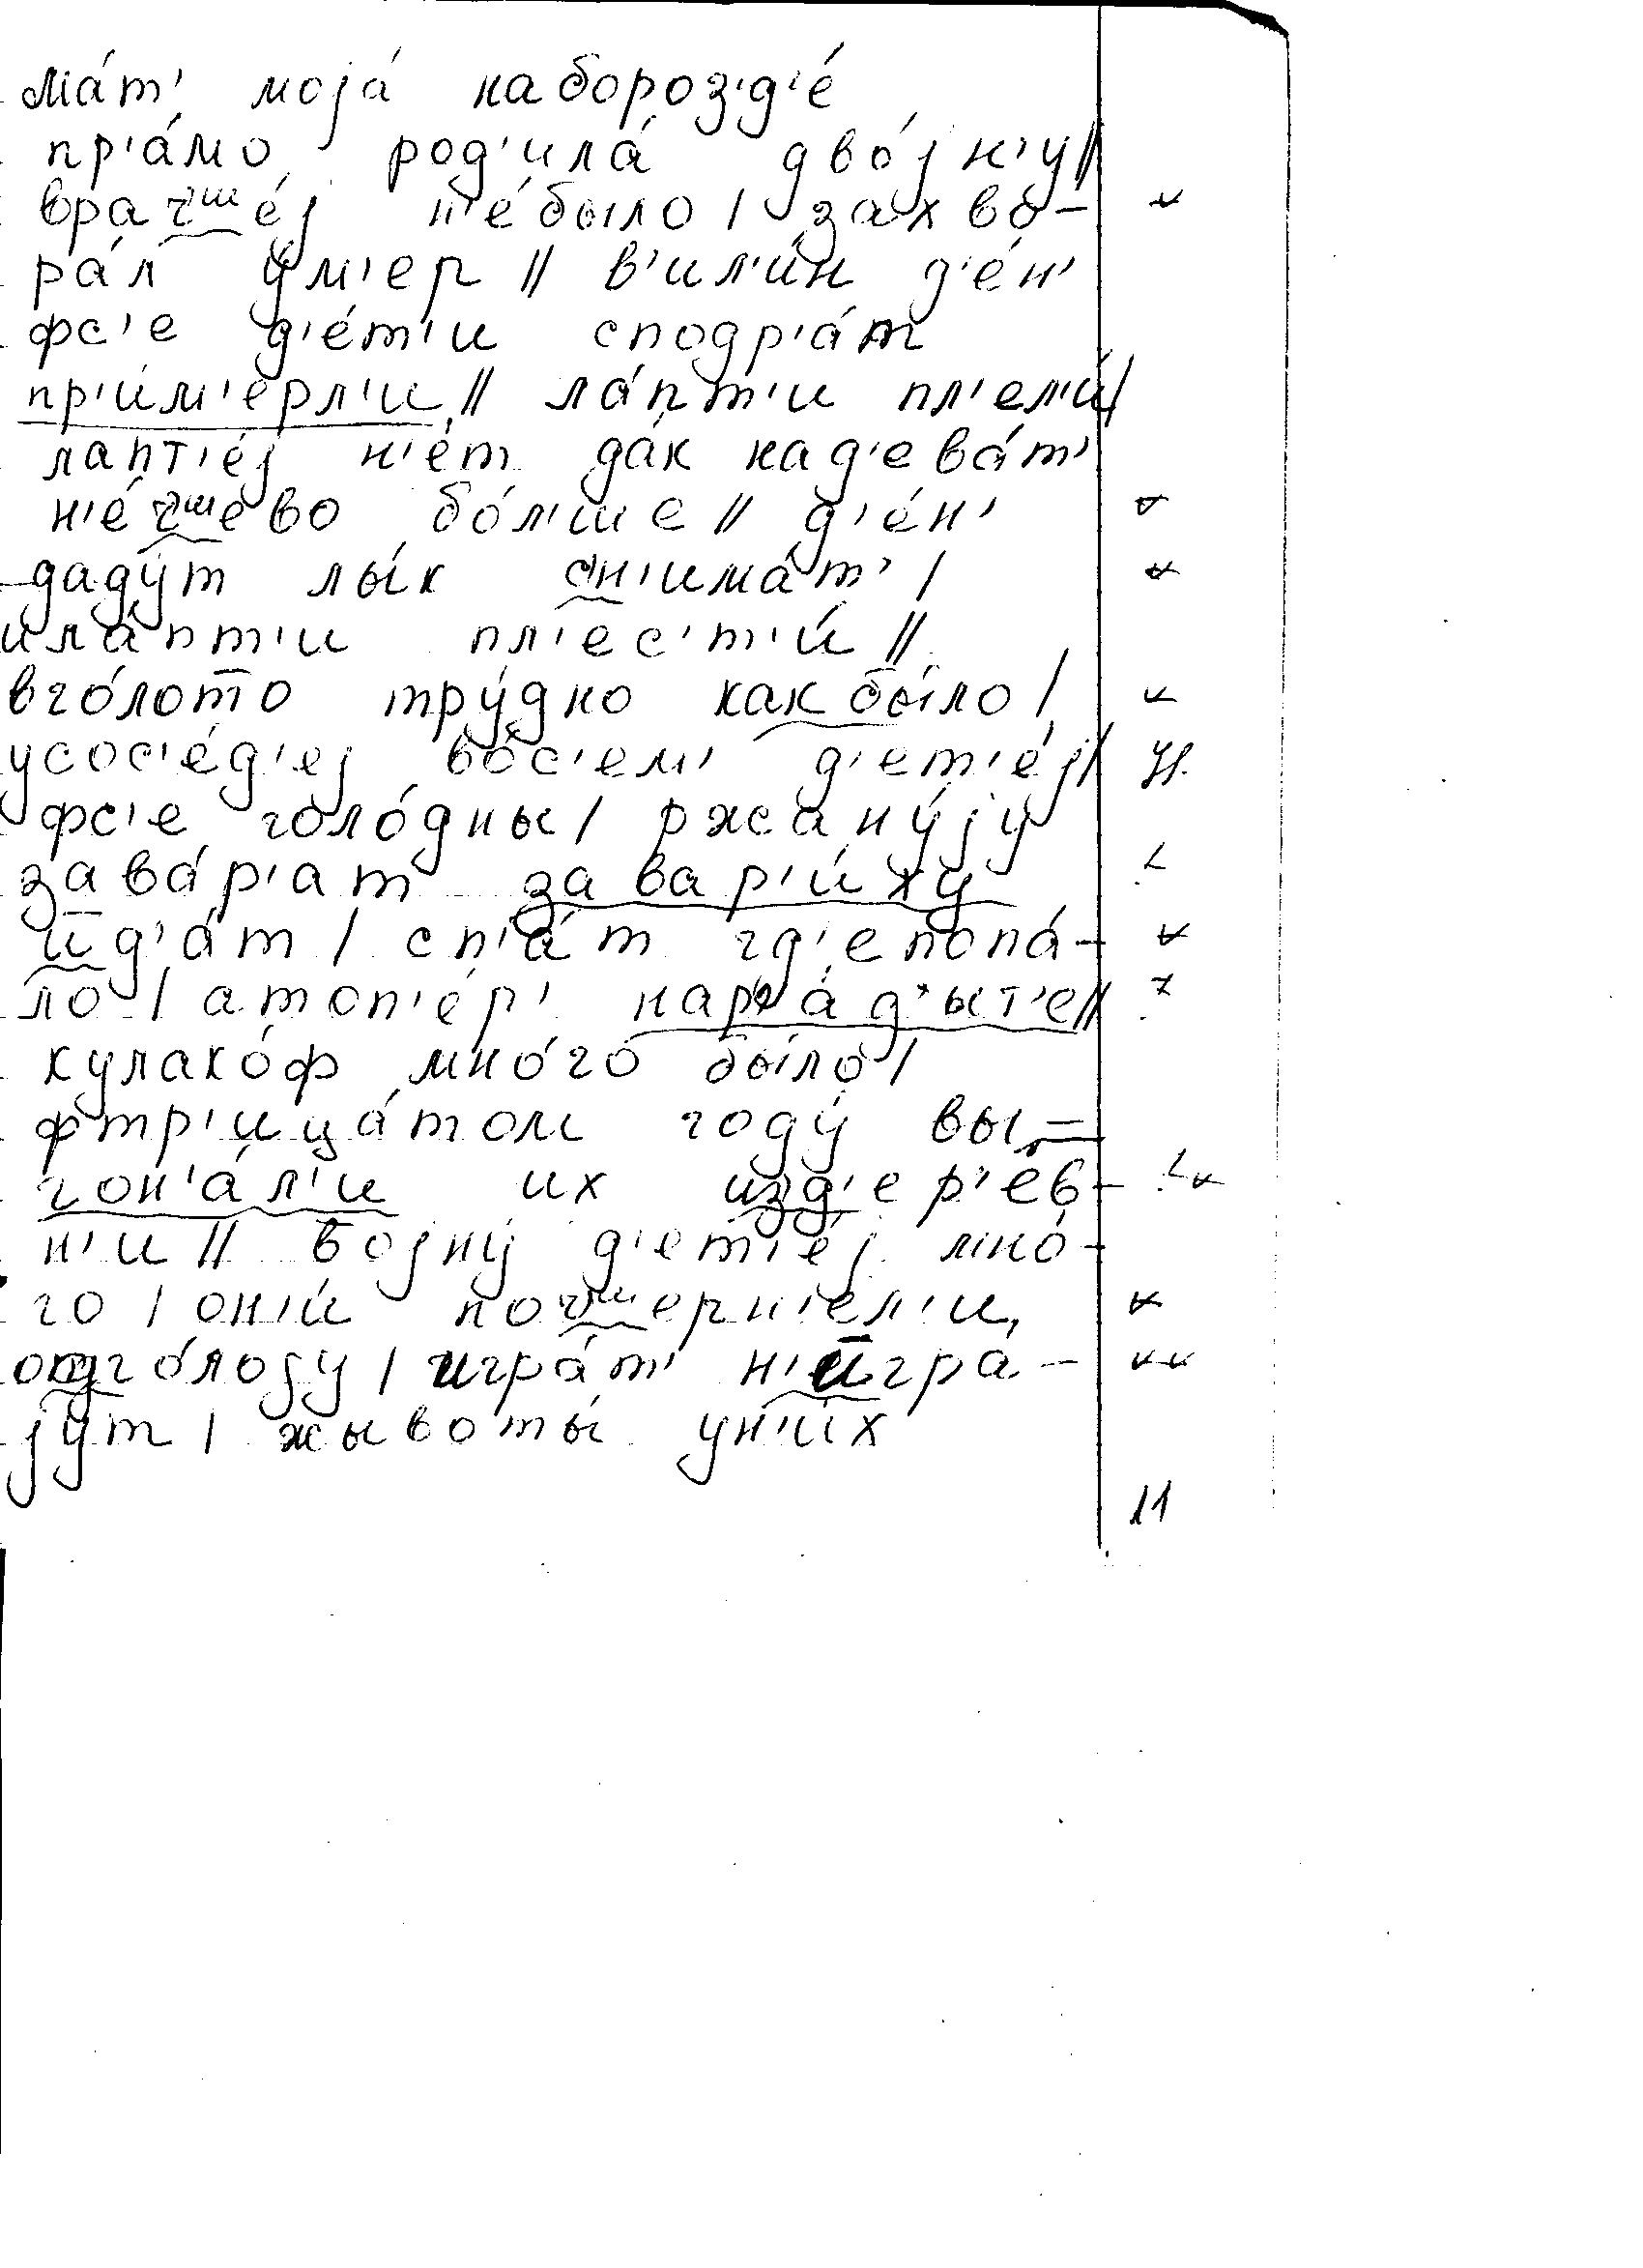 ма́т' моја́ набороз'д'е́
пр'а́мо род'ила́ дво́јн'у//
врачше́ј н'е́было / захво-
ра́л у́м'ер // в'ил'и́н д'е́н'
фс'е д'е́т'и сподр'а́т
пр'и́м'ерл'и // ла́пт'и пл'ел'и́/
лапт'е́ј н'е́т да́к над'ева́т'
н'е́чшево бо́л'ше // д'е́н'
даду́т лы́к сн'има́т' /
ила́пт'и пл'ес'т'и́ //
вго́лото тру́дно как бы́ло /
усос'е́д'еј во́с'ем' д'ет'е́ј/
фс'е голо́дны / ржану́ју
зава́р'ат завар'и́ху
ид'а́т / сп'а́т гд'епопа́-
ло / атоп'е́р' нар'а́дыт'е//
кулако́ф мно́го бы́ло /
фтр'ица́том году́ вы-
гон'а́л'и их изд'ер'е́в-
н'и // војну́ д'ет'е́ј мно́-
го / он'и́ почшерн'е́л'и
одго́лоду / игра́т' н'игра-
јут / жывоты́ ун'и́х
11